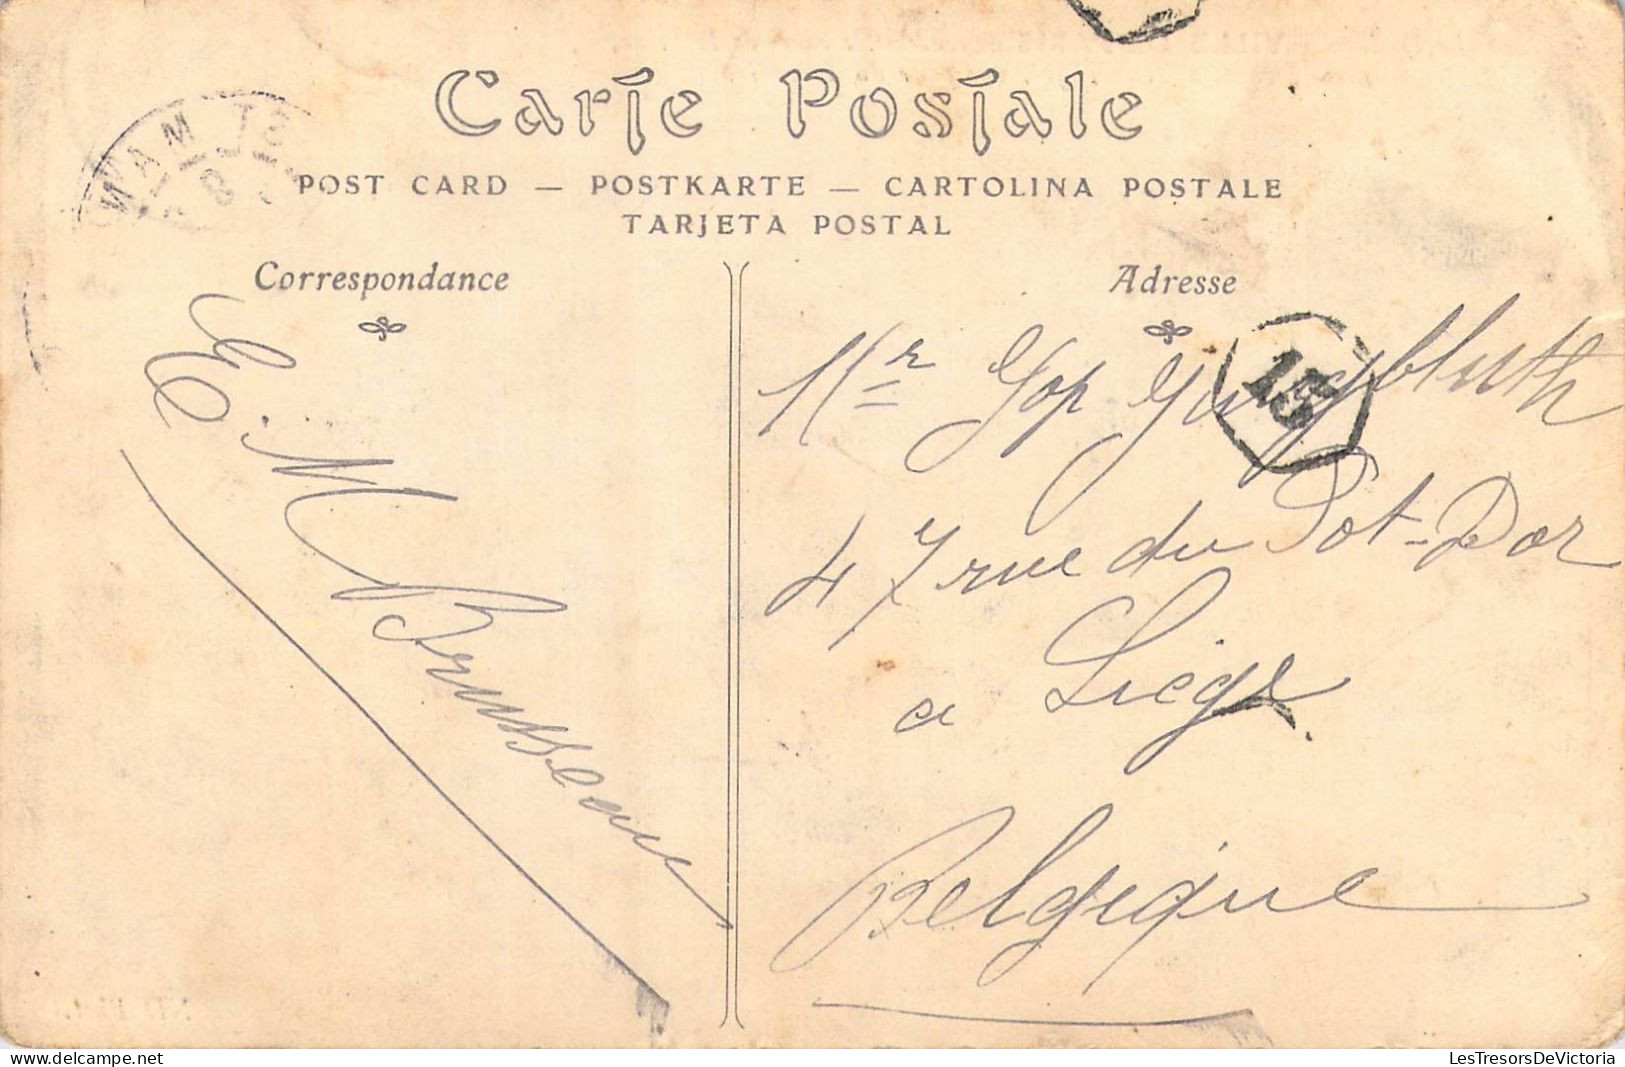 Carte Postale
POST CARD — POSTKARTE — CARTOLINA POSTALE
TARJETA POSTAL
Correspondance
Adresse
E. M Brusseau
Mr Jos Jungbluth
15
47 rue du Pot-Dor
a Liège
Belgique
LesTresorsDeVictoria